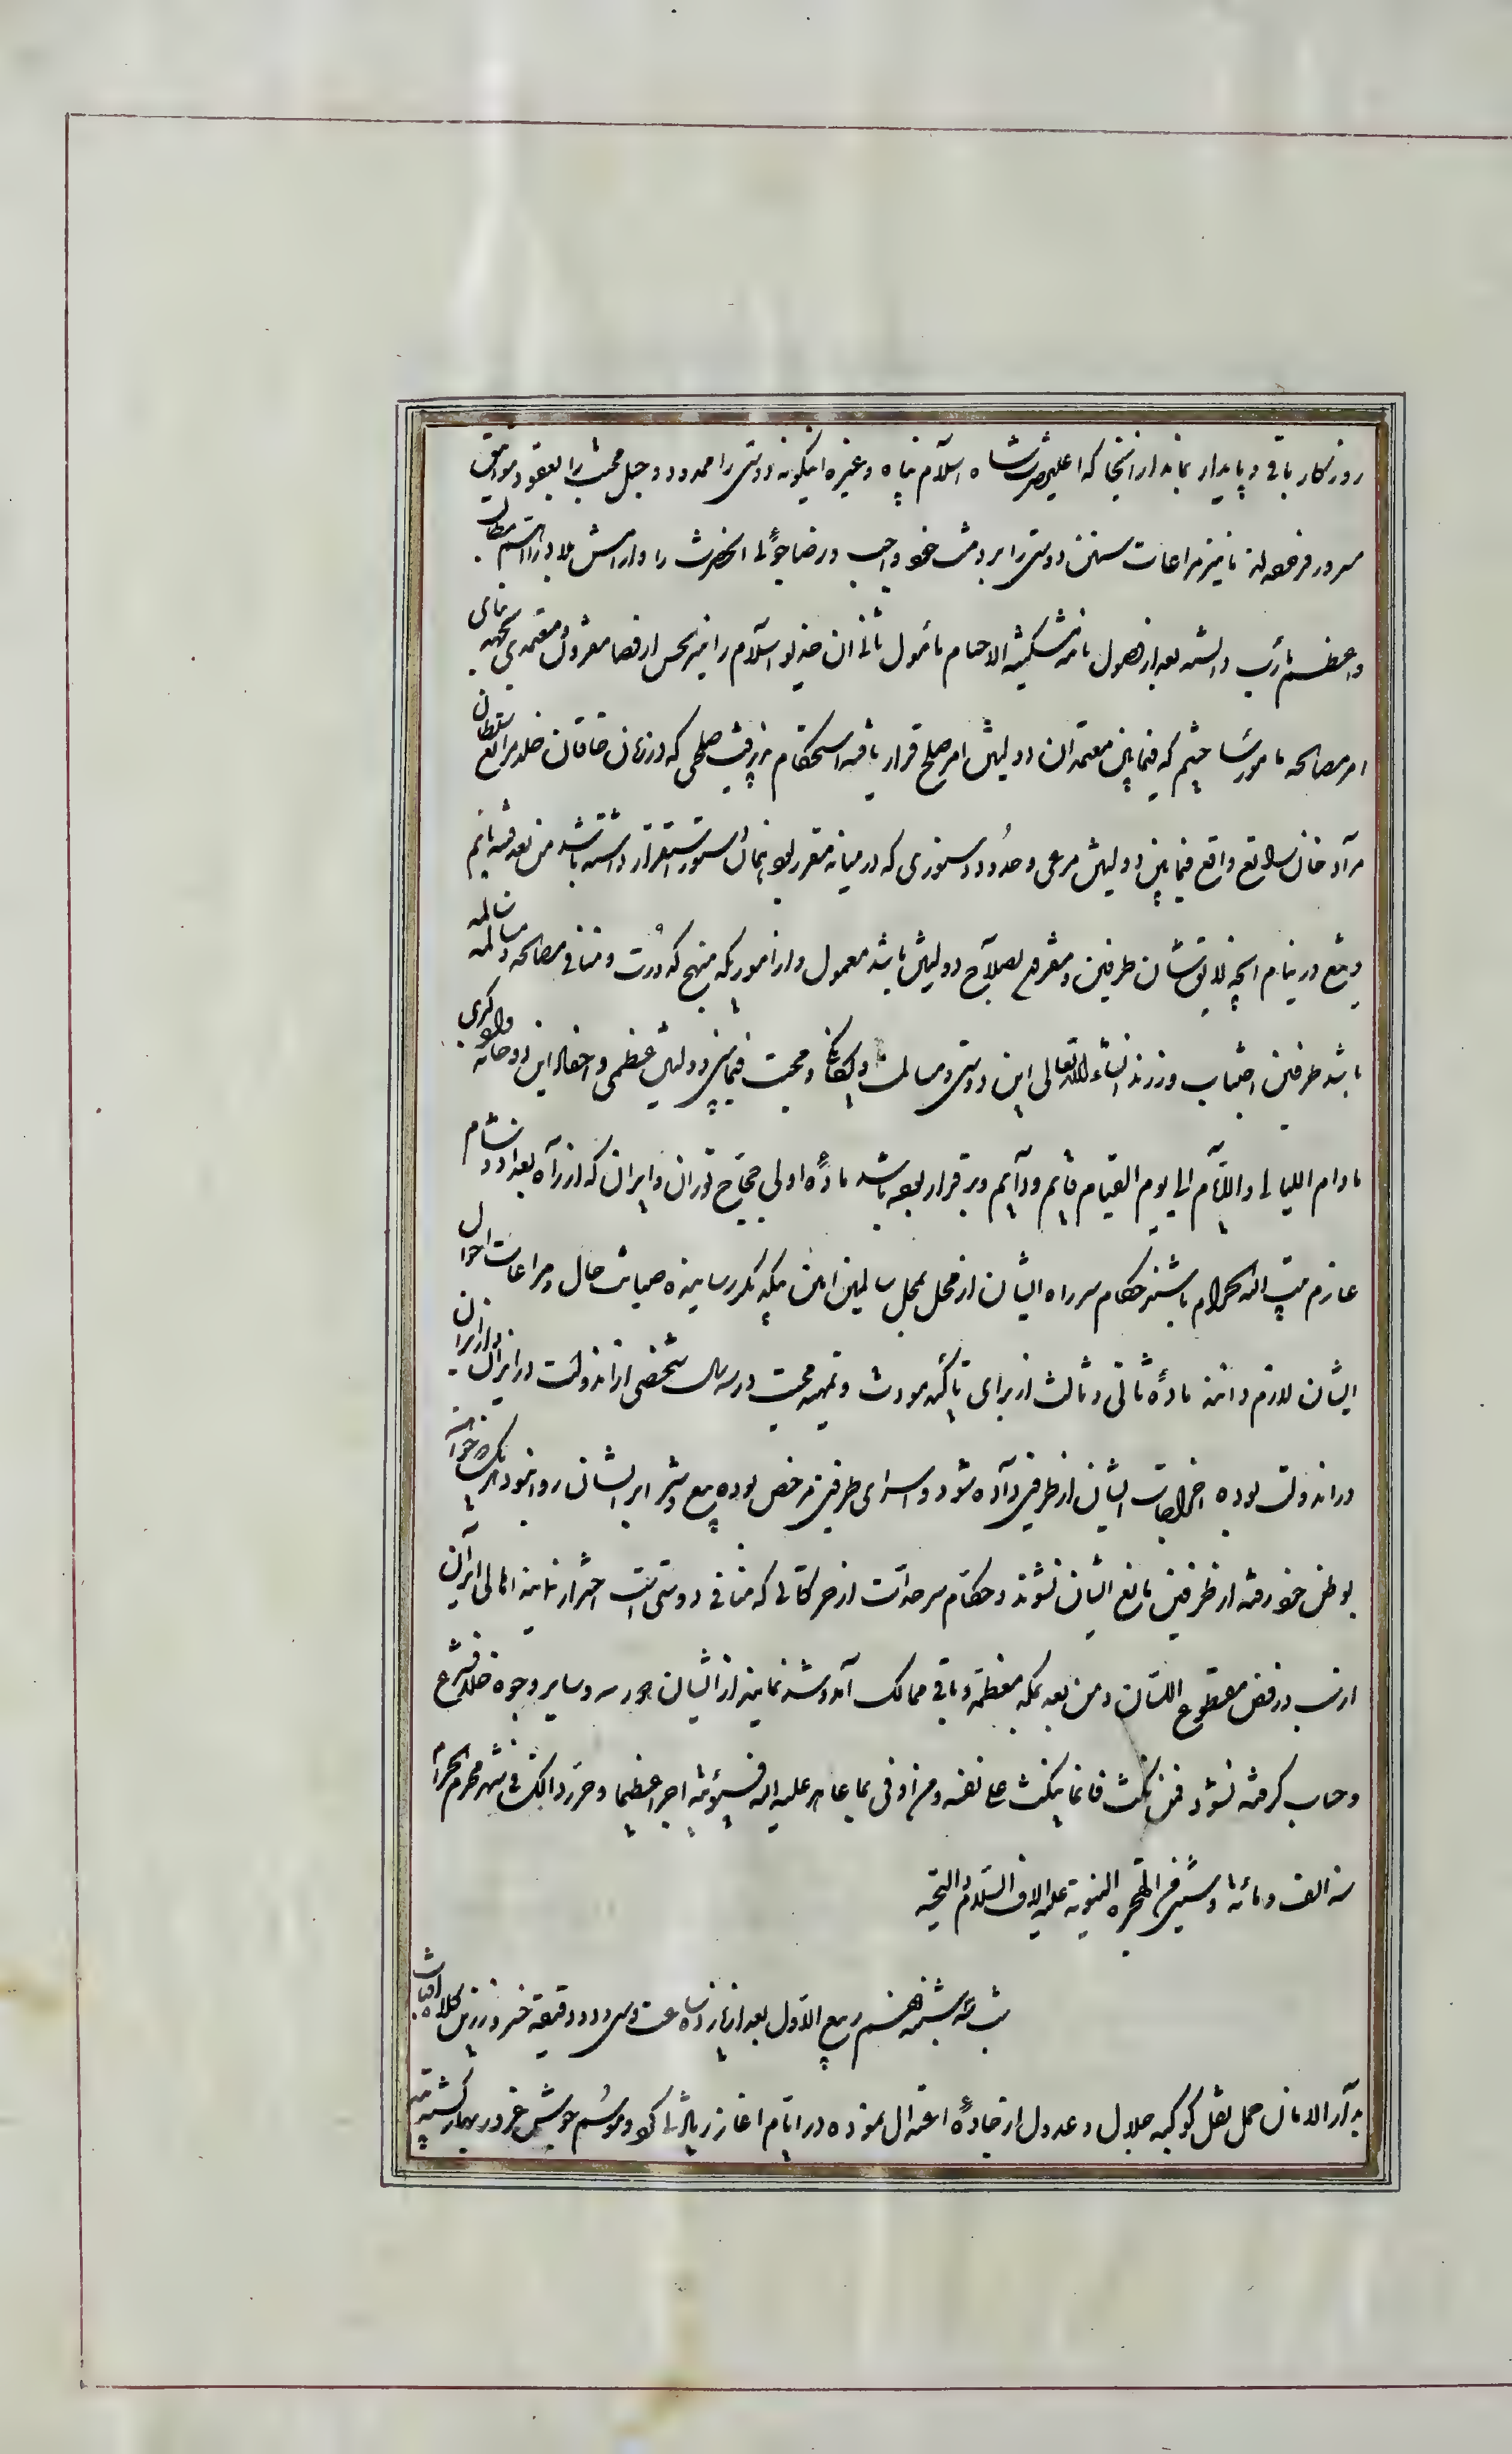 روزگار باقی و پایدار بماند از انجا که اعلیحضرت شاه اسلام پناه وغیره اینگونه دوستی را ممدود و حبل محبت را بعقود مواثیق
فرموده‌اند ما نیز مراعات سنن دوستی را بر ذمت خود واجب و رضاجوئی انحضرت را و ارامش بلاد را اهم مطالب
و اعظم مآرب دانسته بعد از وصول نامه مشکینة الختام مأمول ثانی ان خدیو اسلام را نیز بحسن ارفضا مقرون و معتمدی بجهة
امر مصالحه مامور ساختیم که فیمابین معتمدان دولتین امر صلح قرار یافته استحکام پذیرفت صلحی که در زمان خاقان خلد مراتع سلطان
مراد خان رابع واقع فیمابین دولتین مرعی و حدود و سنوری که در میانه مقرر بود بهمان دستور استقرار داشته باشد من بعد فتنه نایم
و تیغ در نیام انچه لایق شان طرفین و مقرون بصلاح دولتین باشد معمول و از اموریکه مهیج کدورت و منافی مصالحه و مسالمه
باشد طرفین اجتناب ورزند انشاء الله تعالی این دوستی و مسالمت و یگانگی و محبت فیمابین دولتین عظمی و احفاد این دودمان کبری
مادام اللیالی والایام الی یوم القیام قائم و دایم و برقرار بوده باشد مادهٔ اولی حجاج توران و ایران که از راه بغداد و شام
عازم بیت الله الحرام باشند حکام سر راه ایشان از محل بمحل سالمین امنین بیکدیگر رسانیده صیانت حال و مراعات احوال
ایشان لازم دانند مادهٔ ثانی و ثالث از برای تأکید مودت و تمهید محبت در سه سال شخصی از اندولت در ایران و از ایران
در اندولت بوده اخراجات ایشان از طرفین داده شود و اسرای طرفین مرخص بوده بیع و شرا بر ایشان روا نبود هر یک خواهند
بوطن خود رفته از طرفین مانع ایشان نشوند و حکام سرحدات از حرکاتی که منافی دوستی است احتراز نمایند اهالی ایران
از سب و رفض مقطوع اللسان و من بعد بمکه معظمه و باقی ممالک آمد و شد نمایند از ایشان دورمه و سایر وجوه خلاف شرع
و حساب گرفته نشود فمن نکث فانما ینکث علی نفسه و من اوفی بما عاهد علیه الله فسیؤتیه اجرا عظیما و حرر ذالک فی شهر محرم الحرام
سنه الف و مائة و ستین من الهجره النبویة علیه الاف السلام و التحیه
شب سه شنبه هفتم ربیع الاول بعد از یازده ساعت و سی و دو دقیقه خسرو زرین کلاه افتاب
بدار الامان حمل نقل کوکبه جلال و عدول از جادهٔ اعتدال نموده در ایام اغاز زیاد و موسم جوش غرور بهار